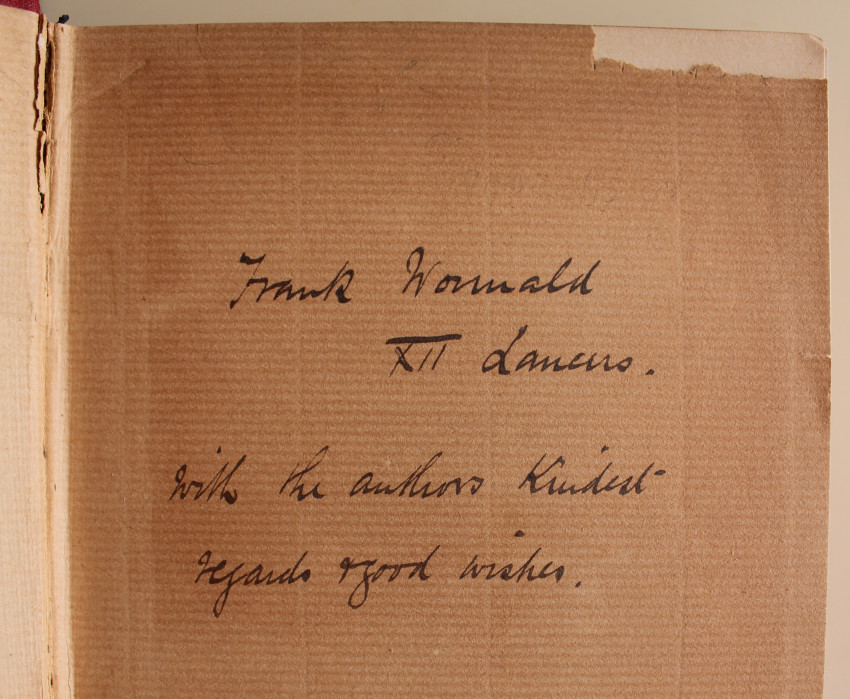 Frank Wormald
XII Lancers.
with the authors Kindest
regards & good wishes.